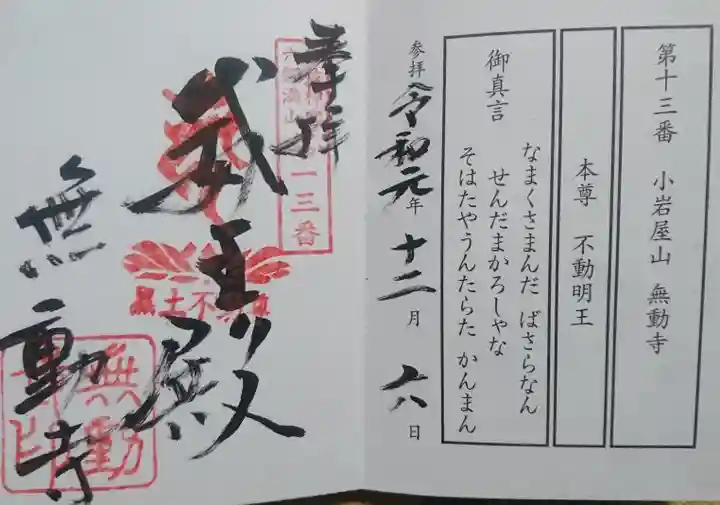 第十三番 小岩屋山 無動寺
本尊 不動明王
御真言
なまくさまんだ ばさらなん
せんだまかろしゃな
そはたやうんたらた かんまん
参拝 令和元年 十二月 六日
奉拝
一三番
王殿
無動寺
黒土不
無動